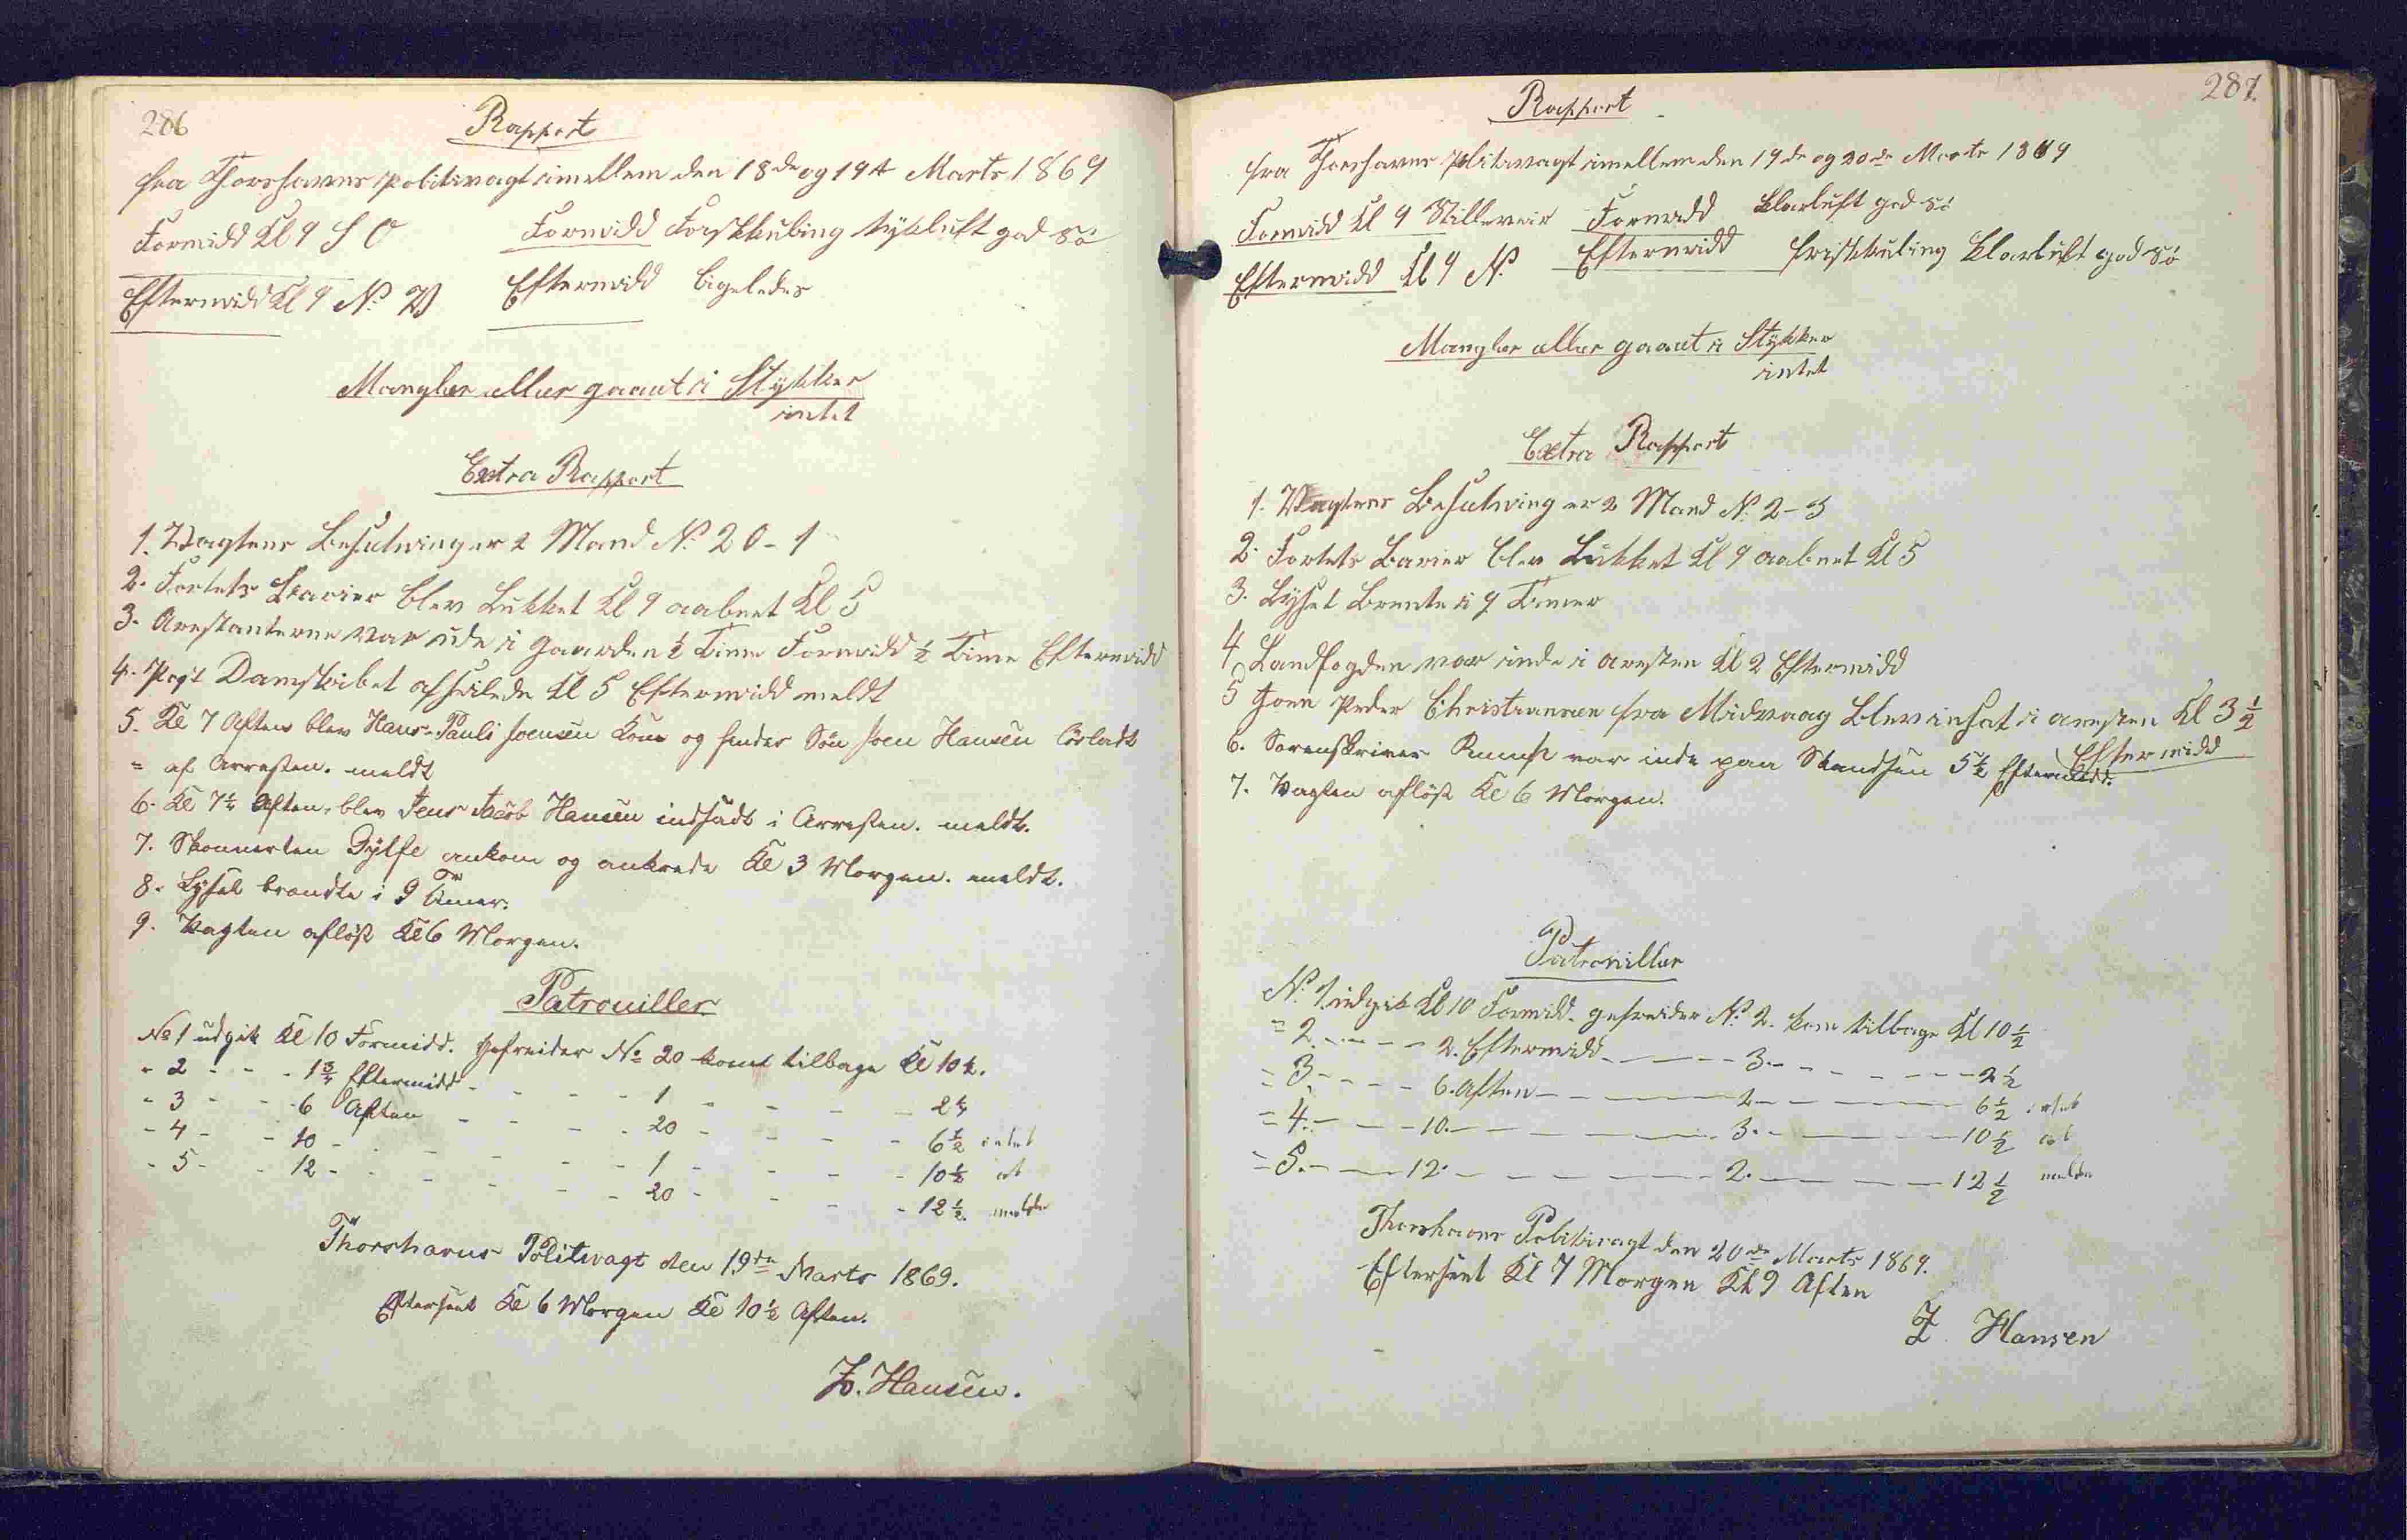 286
Rapport
fra Thorshavns politivagt imellem den 18de og 19de Marts 1869
Formidd Kl 9 S O Formidd Friskkuling tykluft god Sö
Eftermidd Kl 9 N. V Eftermidd ligeledes
Mangler eller gaaet i Stykker
intet
Extra Rapport
1. Vagtens Besætning er 2 Mand N. 20 - 1
2. Fortets Barier blev Lukket Kl 9 aabnet Kl 5
3. Arestanterne var ude i gaarden ½ Time Formidd ½ Time Eftermidd
4. Post Damskibet afseilede Kl 5 Eftermidd meldt
5. Kl 7 Aften blev Hans Pauli Joensen Kone og hendes Sön Joen Hansen lösladt
= af Arresten. meldt
6. Kl 7½ Aften, blev Jens Jacob Hansen indsadt i Arresten. meldt.
7. Skonnerten Gylfe ankom og ankrede Kl 3 Morgen. meldt.
8. Lyset brændte i 9 Timer.
9. Vagten aflöst Kl 6 Morgen.
Patrouiller
No 1 udgik Kl 10 Formidd. Gefreider No 20 kom tilbage Kl 10½.
- 2 - - - 1¾ Eftermidd - - - 1 - - - 2¼
- 3 - - - 6 Aften - - - 20 - - - 6½ intet
- 4 - - - 10 - - - 1 - - - 10½ at
- 5 - - - 12 - - - 20 - - - 12½ melde
Thorshavns Politivagt den 19de Marts 1869.
Efterseet Kl 6 Morgen Kl 10½ Aften.
Z. Hansen.
287.
Rapport
fra Thorshavns Politivagt imellem den 19de og 20de Marts 1869
Formidd Kl 9 Stilleveir Formidd Klarluft god Sö
Eftermidd Kl 9 N. Eftermidd friskkuling Klarluft god Sö
Mangler eller gaaet i Stykker
intet
Extra Rapport
1. Vagtens Besætning er 2 Mand N. 2 - 3
2. Fortets Barier blev Lukket Kl 9 aabnet Kl 5
3. Lyset Brente i 9 Timer
4. Landfogden var inde i aresten Kl 2 Eftermidd
5 Joen Peder Christiansen fra Midvaag blev insat i aresten Kl 3½
Eftermidd
6. Sorenskriver var inde paa Skandsen 5½ Eftermidd.
7. Vagten aflöst Kl 6 Morgen.
Patrouiller
N. 1. udgik Kl 10 Formidd. gefreider N. 2. kom tilbage Kl 10½
= 2. - - - 2. Eftermidd - - - 3. - - - 2½
= 3. - - - 6. Aften - - - 2 - - - 6½ intet
= 4. - - - 10. - - - 3. - - - 10½ at
= 5. - - - 12. - - - 2. - - - 12½ melde
Thorshavns Politivagt den 20de Marts 1869.
Efterseet Kl 7 Morgen Kl 9 Aften
Z. Hansen